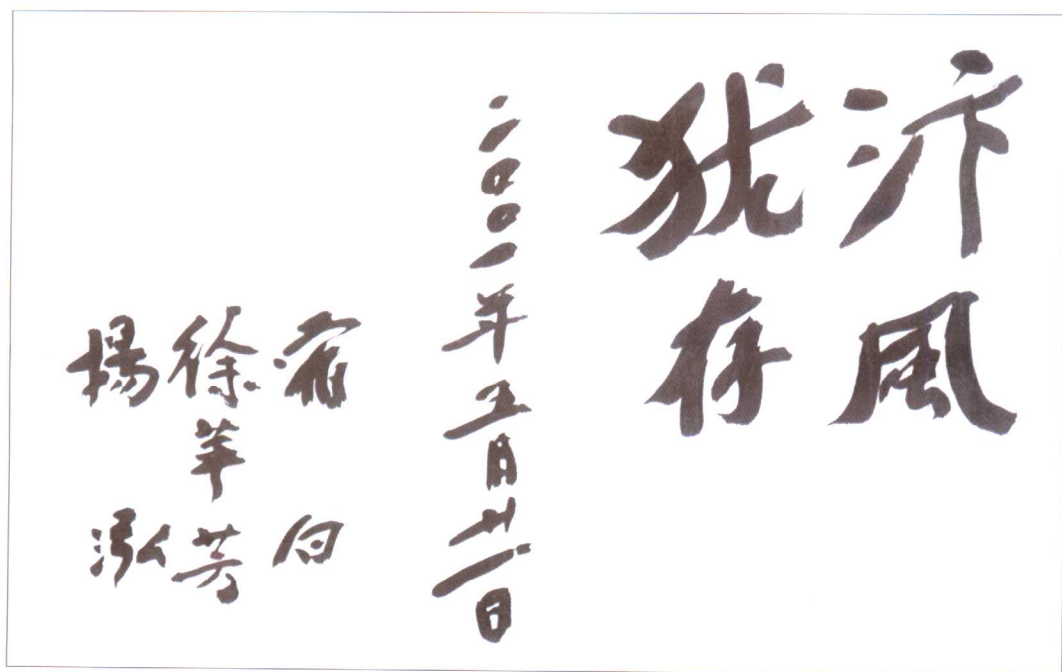 汴風
犹存
二〇〇一年五月廿二日
宿白
徐苹芳
楊泓